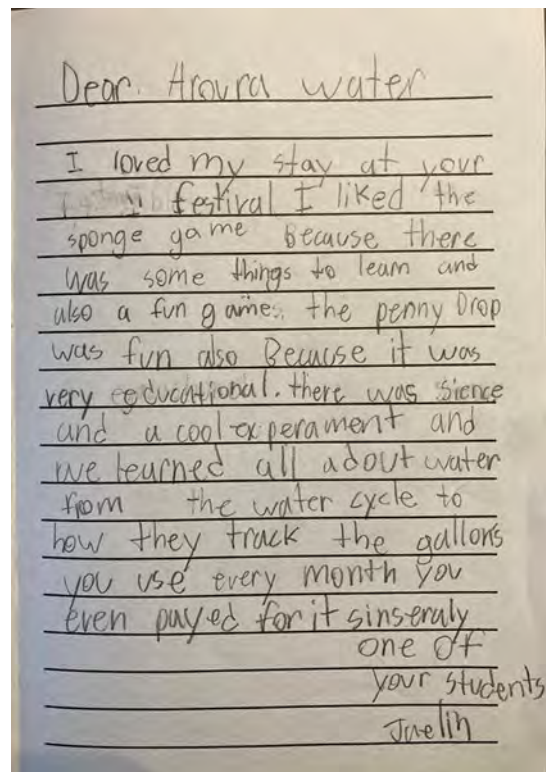 Dear Aroura water
I loved my stay at your
festival I liked the
sponge game Because there
was some things to learn and
also a fun games. the penny Drop
was fun also Becuse it was
very educational. there was sience
and a cool experament and
we learned all adout water
from the water cycle to
how they track the gallons
you use every month you
even payed for it sinseraly
one of
your students